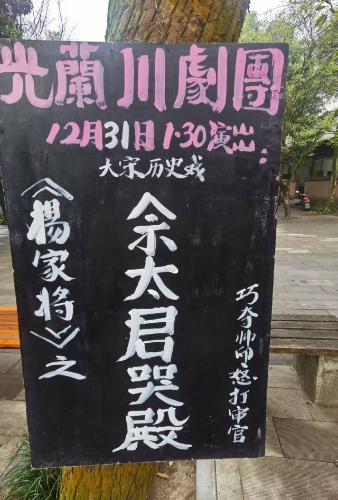 光蘭川劇團
12月31日1:30演出:
大宋历史戏
《楊家将》之
佘太君哭殿
巧夺帅印怒打审官